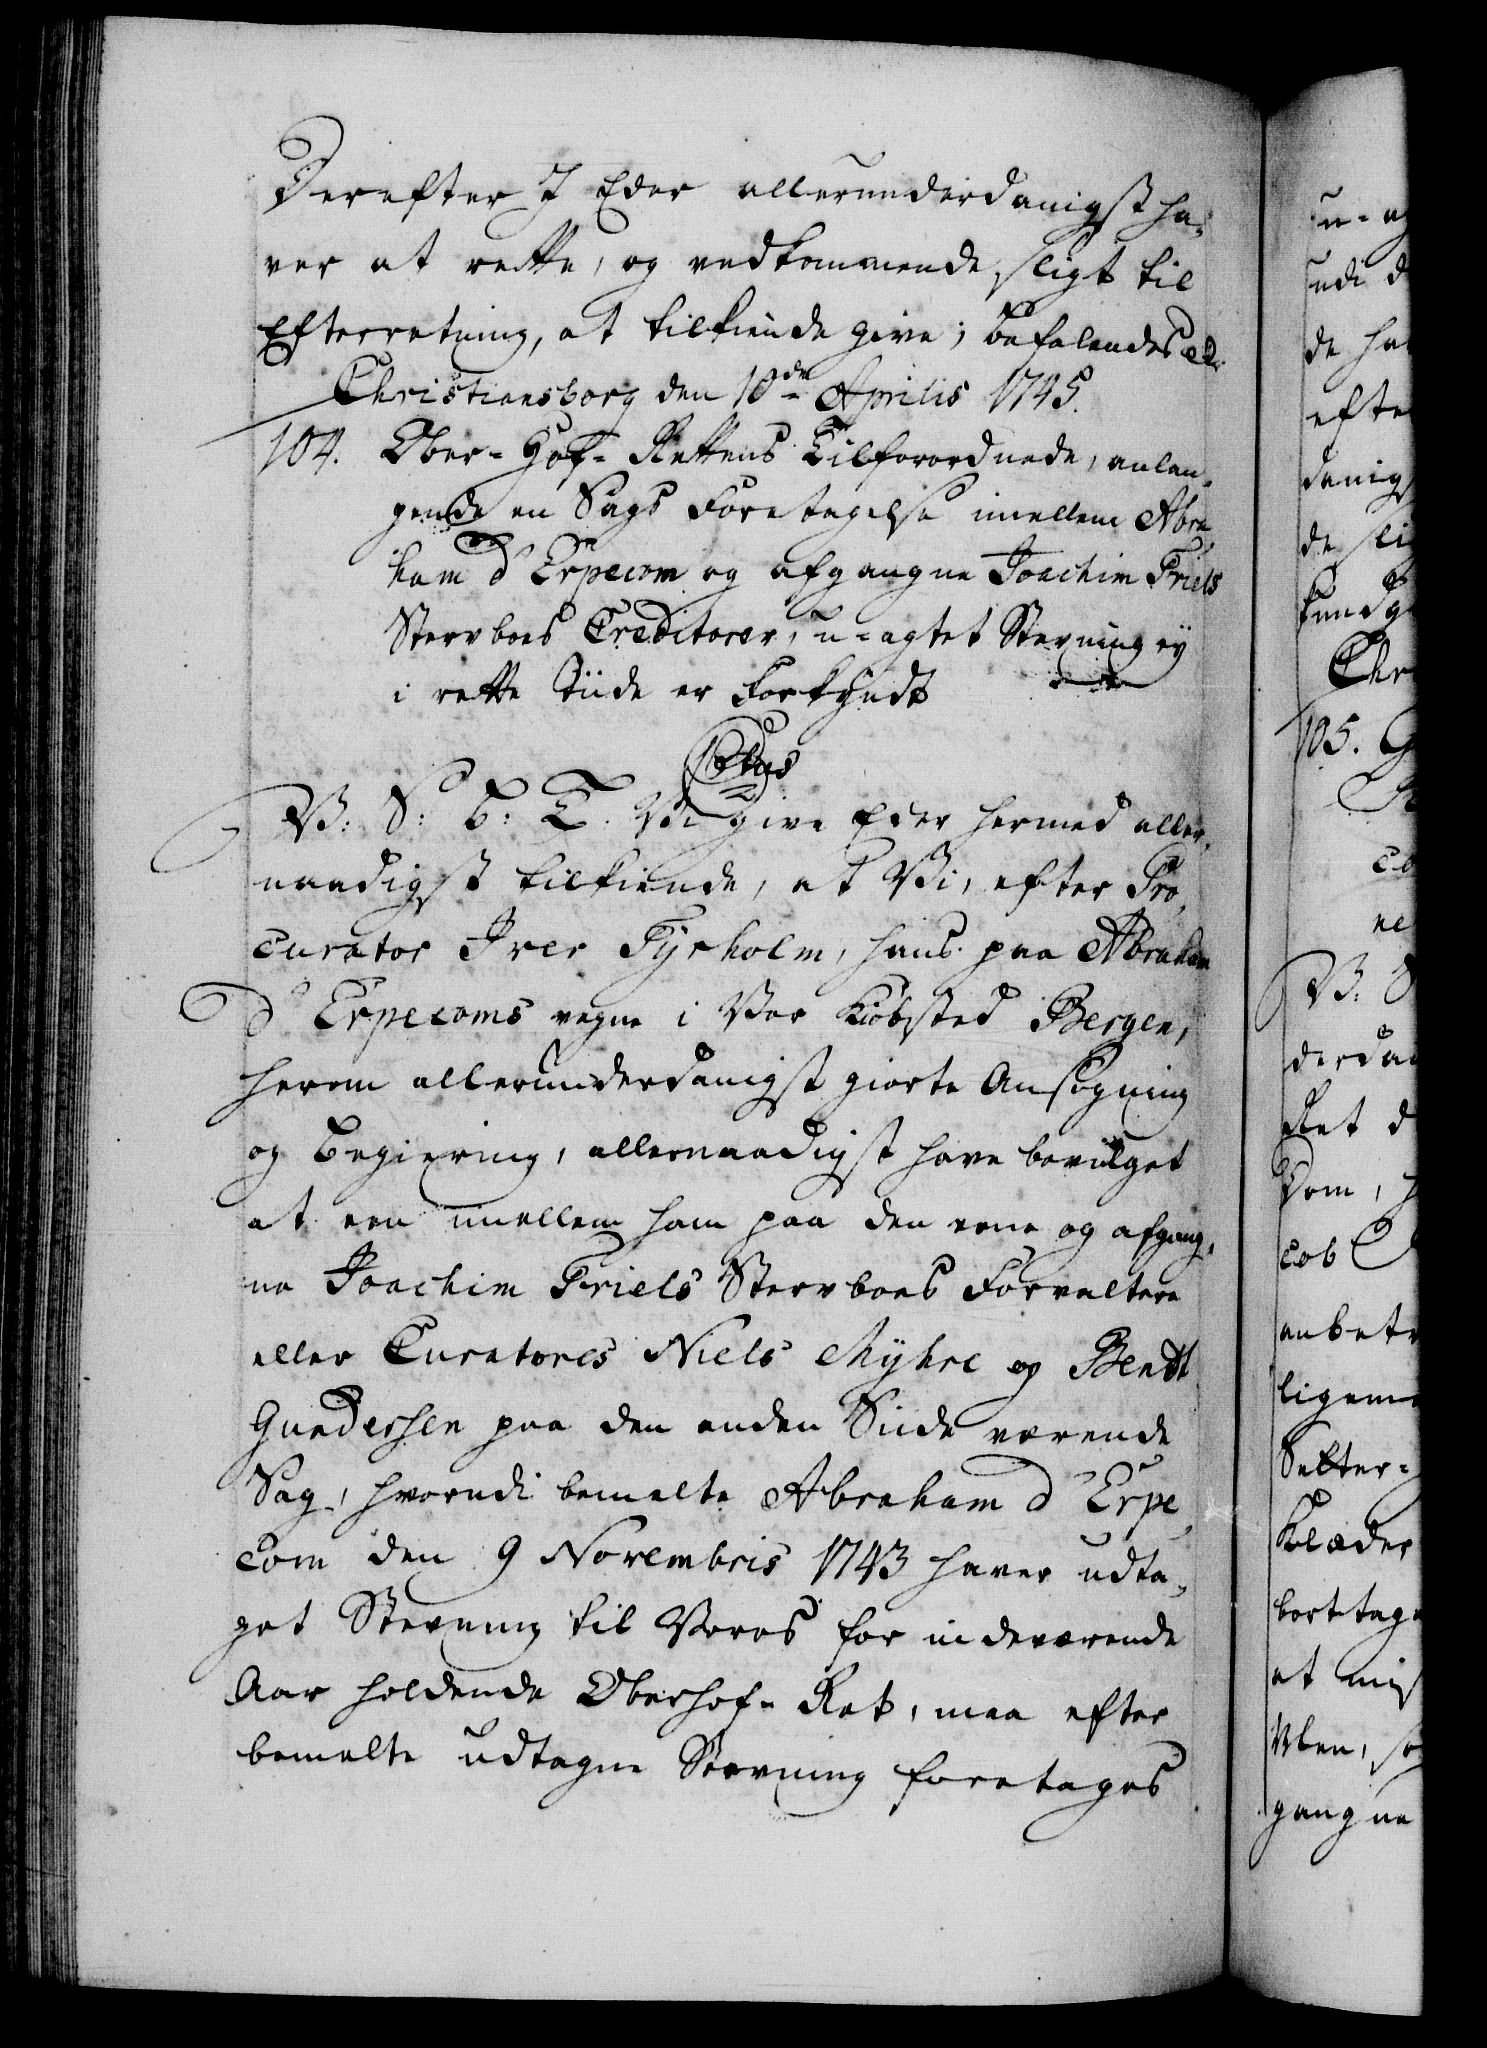 Derefter I Eder allerunderdanigst ha-
ver at rette, og vedkommende sligt til
Efterretning, at tilkiende give; Befalendes etc.
Christiansborg den 10de Aprilis 1745.
104. Ober-Hof-Rettens Tilforordnede, anlan-
gende en Sags Foretagelse imellem Abra-
ham d'Erpecom og afgangne Joachim Friels
Sterfboes Creditorer, u-agtet Stevning ey
i rette Tiide er Forkyndt
C6tus
V: S: G: T. Vi give Eder hermed aller-
naadigst tilkiende, at Vi, efter Pro-
curator Iver Fyrholm, hans paa Abraham
d'Erpecoms vegne i Vor Kiøbsted Bergen,
herom allerunderdanigst giorte Ansøgning
og Begiering, allernaadigst have bevilget
at een imellem ham paa den eene og afgang-
ne Joachim Friels Sterfboes Forvaltere
eller Curatores Niels Myhre og Bendt
Gundersen paa den anden Siide værende
Sag, hvorudi bemelte Abraham d'Erpe-
com den 9 Novembris 1743 haver udta-
get Stevning til Vores for indeværende
Aar holdende Oberhof-Ret, maa efter
bemelte udtagne Stevning foretages
u-ag
udi d
de ha
efter
danigs
de slig
kundg
Chr
105. G
co
ne
V: S
derdan
Ret d
Dom, h
cob
anbetr
ligem
Setter-
Klæder
borttage
at mis
Vlen, so
gangne